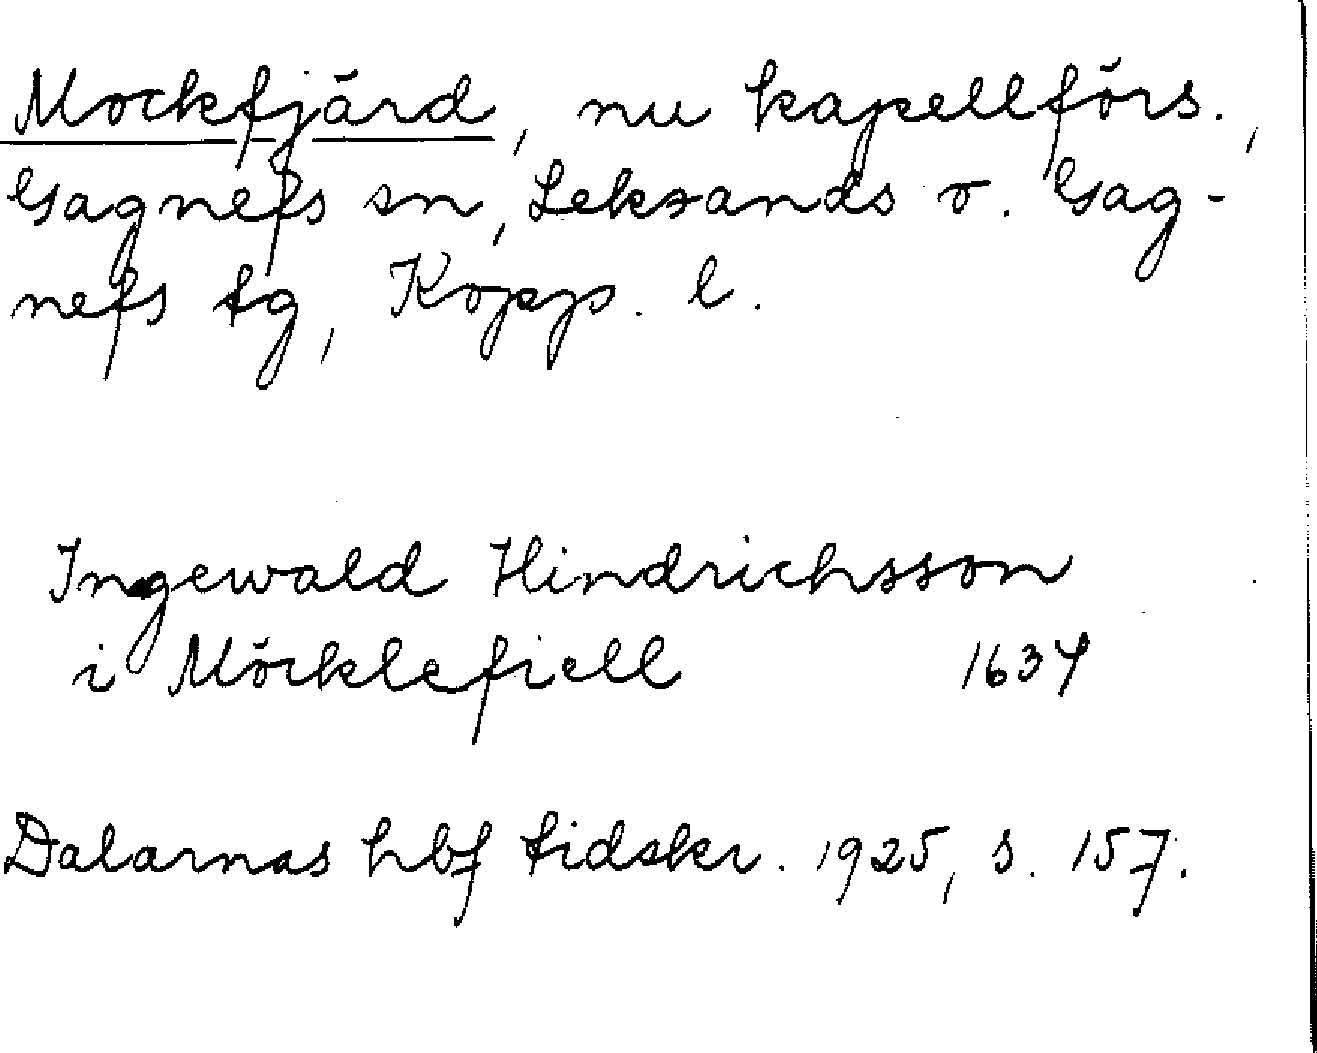 Mockfjärd, nu kapellförs.,
Gagnefs sn, Leksands o. Gag-
nefs tg, Kopp. l.
Ingewald Hindrichsson
i Möcklefiell 1634
Dalarnas hbf tidskr. 1925, s. 157.